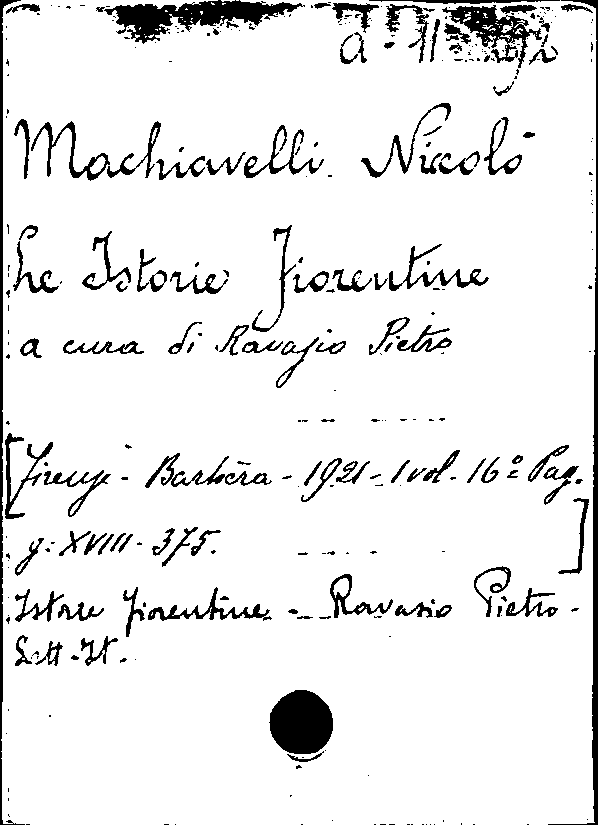 a - 11
Machiavelli Niccolò
Le Istorie Fiorentine
a cura di Ravasio Pietro
[Firenze - Barbèra - 1921 - 1 vol. 16º Pag.
g: XVIII - 375. ]
Istorie fiorentine - Ravasio Pietro -
Lett. It.